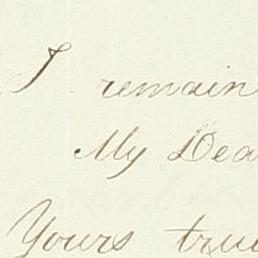 I remain
My Dea
Yours tru